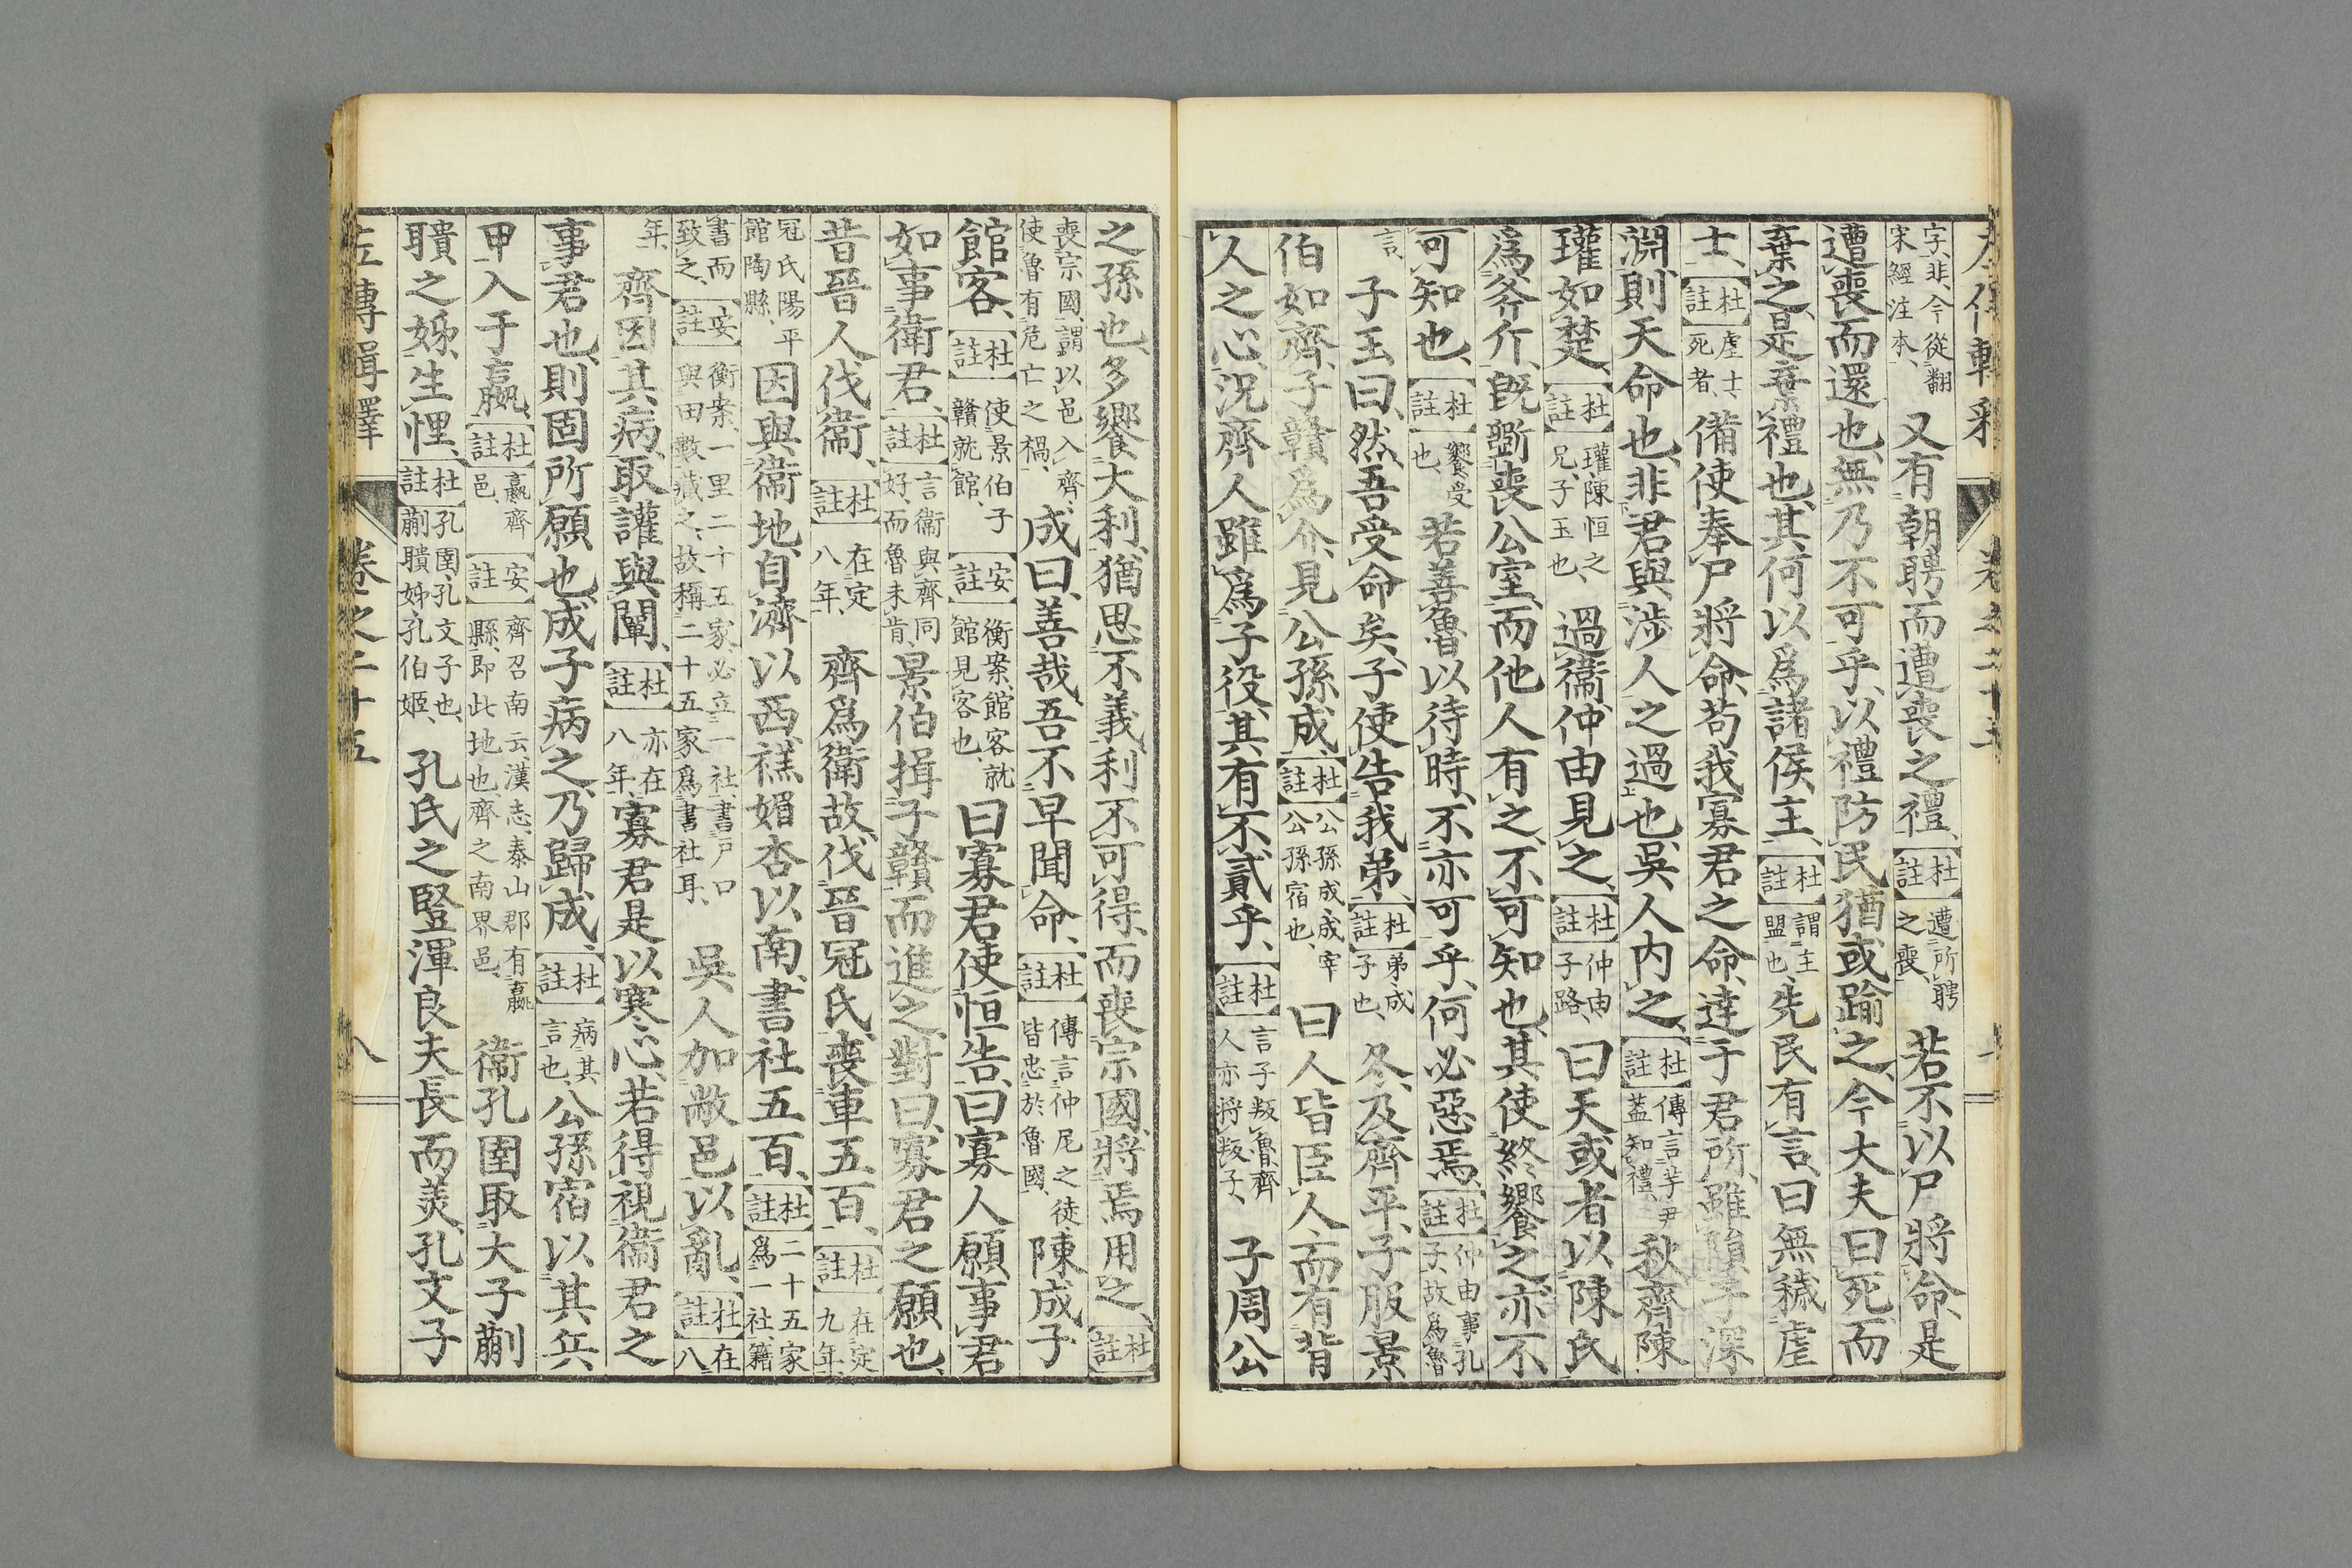 字、非、今從翻宋經注本、又有朝聘而遭喪之禮、杜註遭所聘之喪、若不以尸將命、是
遭喪而還也、無乃不可乎、以禮防民、猶或踰之、今大夫曰、死而
棄之、是棄禮也、其何以爲諸侯主、杜註謂主盟也、先民有言、曰無穢虐
士、杜註虐士、死者、備使奉尸將命、苟我寡君之命、達于君所、雖隕于深
淵、則天命也、非君與涉人之過也、吳人内之、杜註傳言芋尹蓋知禮、秋、齊陳
瓘如楚、杜註瓘、陳恒之兄、子玉也、過衞、仲由見之、杜註仲由、子路、曰天或者以陳氏
爲斧斤、既斵喪公室、而他人有之、不可知也、其使終饗之、亦不
可知也、杜註饗、受也、若善魯以待時、不亦可乎、何必惡焉、杜註仲由事孔子、故爲魯
言、子玉曰、然、吾受命矣、子使告我弟、杜註弟、成子也、冬、及齊平、子服景
伯如齊、子贛爲介、見公孫成、杜註公孫成、成宰公孫宿也、曰人皆臣人、而有背
人之心、況齊人雖爲子役、其有不貳乎、杜註言子叛魯、齊人亦將叛子、子周公
之孫也、多饗大利、猶思不義、利不可得、而喪宗國、將焉用之、杜註
喪宗國、謂以邑入齊、使魯有危亡之禍、成曰、善哉、吾不早聞命、杜註傳言仲尼之徒、皆忠於魯國、陳成子
館客、杜註使景伯子贛就館、安註衡案、館客、就館見客也、曰寡君使恒告、曰寡人願事君
如事衛君、杜註言衞與齊同好、而魯未肯、景伯揖子贛而進之、對曰、寡君之願也、
昔晉人伐衞、杜註在定八年、齊爲衛故、伐晉冠氏、喪車五百、杜註在定九年、
冠氏、陽平館陶縣、因與衞地、自濟以西、禚媚杏以南、書社五百、杜註二十五家爲一社、籍
書而致之、安註衡案、一里二十五家、必立一社、書戸口與田數藏之、故稱二十五家爲書社耳、吳人加敝邑以亂、杜註在八
年、齊因其病、取讙與闡、杜註亦在八年、寡君是以寒心、若得視衞君之
事君也、則固所願也、成子病之、乃歸成、杜註病其言也、公孫宿以其兵
甲入于嬴、杜註嬴、齊邑、安註齊召南云、漢志、泰山郡有嬴縣、即此地也、齊之南界邑、衞孔圉取大子蒯
聵之姊、生悝、杜註孔圉、孔文子也、蒯聵姊、孔伯姬、孔氏之豎渾良夫、長而美、孔文子
左傳輯釋 卷之二十五 八